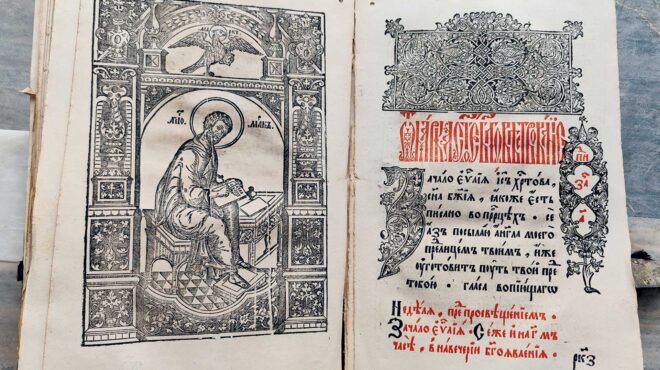 Зачало є҆ѵⷢ҇лїа і҆с҃ъ хр҃това,
сн҃а бж҃їѧ, ꙗкоже єсть
писано во прⷪ҇рцѣхъ. се
азъ посылаю англа моего
преⷣлицемъ твоимъ, иже
оуготовитъ поуть твой преⷣ
тобою. гласъ вопїющаго
Недѣлѧ, преⷣ просвѣщенїемъ.
Зачало є҆ѵⷢ҇лїа. Се же и на г҃мъ
часѣ, в навечерїи бг҃оявленїѧ.
рк҃з